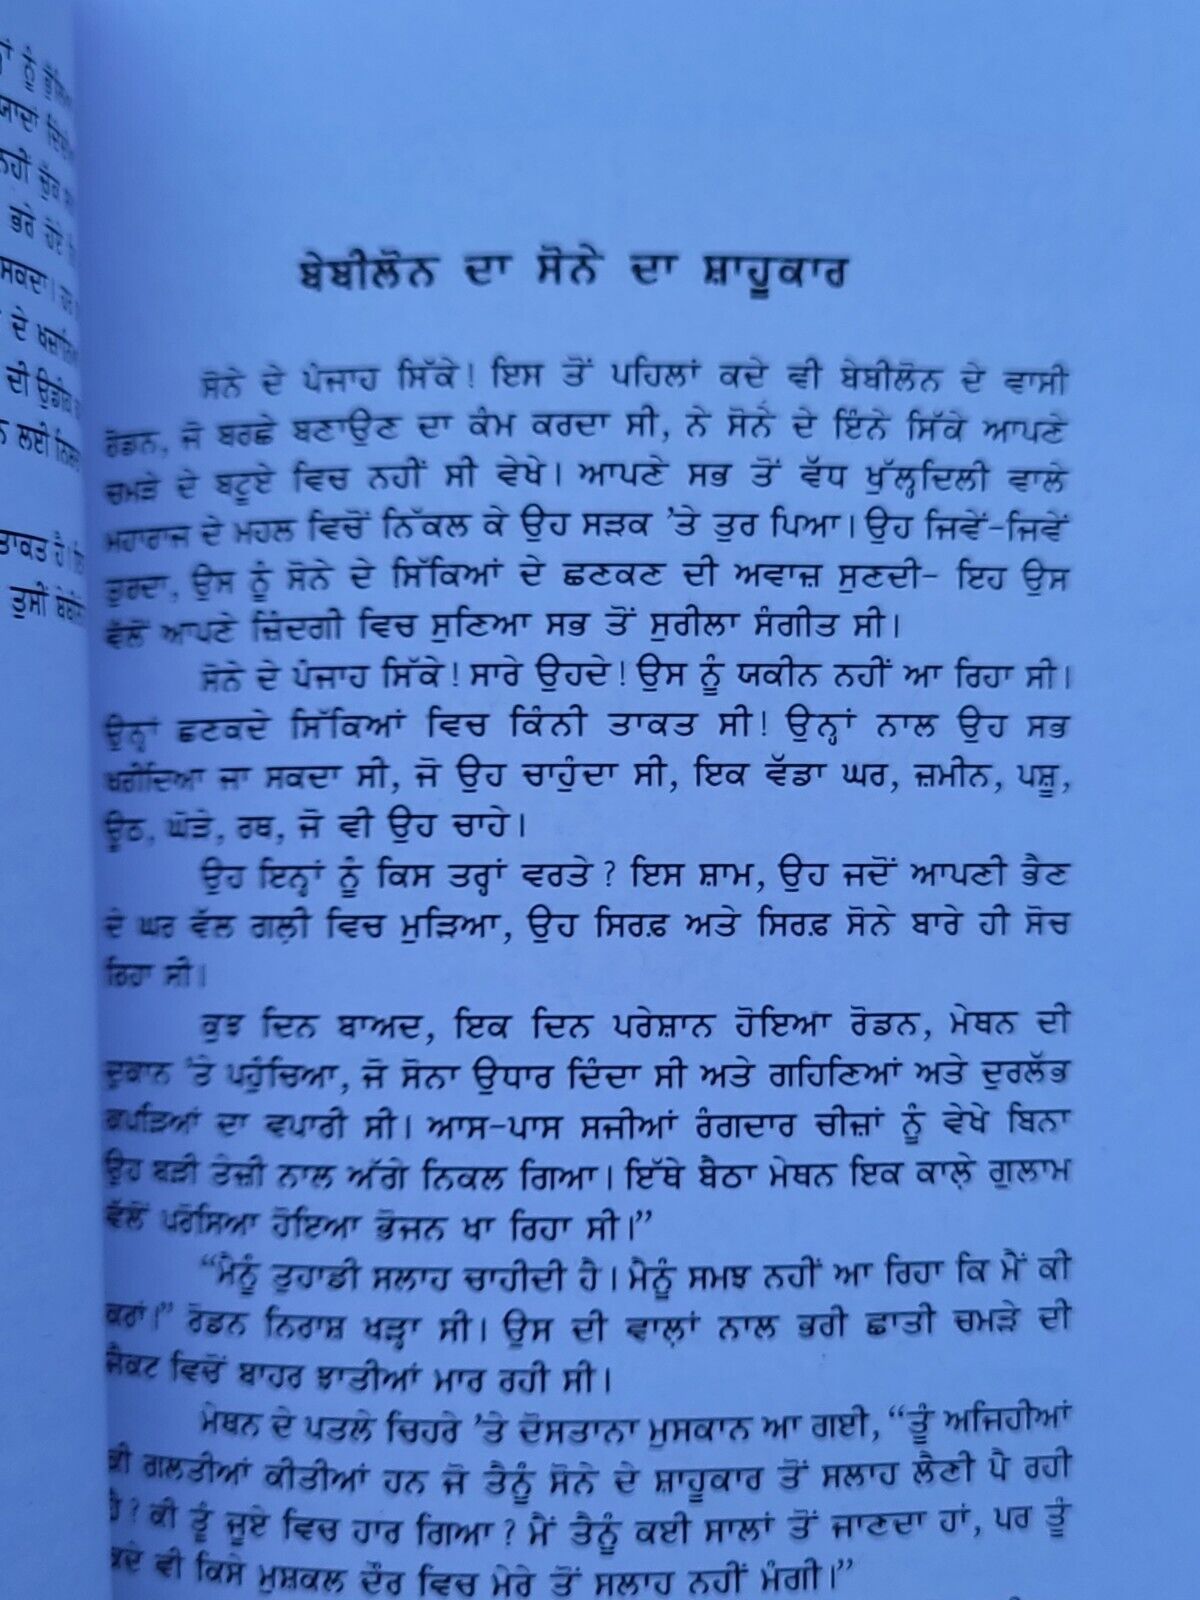 ਬੇਬੀਲੋਨ ਦਾ ਸੋਨੇ ਦਾ ਸ਼ਾਹੂਕਾਰ
ਸੋਨੇ ਦੇ ਪੰਜਾਹ ਸਿੱਕੇ! ਇਸ ਤੋਂ ਪਹਿਲਾਂ ਕਦੇ ਵੀ ਬੇਬੀਲੋਨ ਦੇ ਵਾਸੀ
ਰੋਡਨ, ਜੋ ਬਰਛੇ ਬਣਾਉਣ ਦਾ ਕੰਮ ਕਰਦਾ ਸੀ, ਨੇ ਸੋਨੇ ਦੇ ਇੰਨੇ ਸਿੱਕੇ ਆਪਣੇ
ਚਮੜੇ ਦੇ ਬਟੂਏ ਵਿਚ ਨਹੀਂ ਸੀ ਵੇਖੇ। ਆਪਣੇ ਸਭ ਤੋਂ ਵੱਧ ਖੁੱਲ੍ਹਦਿਲੀ ਵਾਲੇ
ਮਹਾਰਾਜ ਦੇ ਮਹਲ ਵਿਚੋਂ ਨਿੱਕਲ ਕੇ ਉਹ ਸੜਕ ’ਤੇ ਤੁਰ ਪਿਆ। ਉਹ ਜਿਵੇਂ-ਜਿਵੇਂ
ਤੁਰਦਾ, ਉਸ ਨੂੰ ਸੋਨੇ ਦੇ ਸਿੱਕਿਆਂ ਦੇ ਛਣਕਣ ਦੀ ਅਵਾਜ਼ ਸੁਣਦੀ- ਇਹ ਉਸ
ਵੱਲੋਂ ਆਪਣੇ ਜ਼ਿੰਦਗੀ ਵਿਚ ਸੁਣਿਆ ਸਭ ਤੋਂ ਸੁਰੀਲਾ ਸੰਗੀਤ ਸੀ।
ਸੋਨੇ ਦੇ ਪੰਜਾਹ ਸਿੱਕੇ! ਸਾਰੇ ਉਹਦੇ! ਉਸ ਨੂੰ ਯਕੀਨ ਨਹੀਂ ਆ ਰਿਹਾ ਸੀ।
ਉਨ੍ਹਾਂ ਛਣਕਦੇ ਸਿੱਕਿਆਂ ਵਿਚ ਕਿੰਨੀ ਤਾਕਤ ਸੀ! ਉਨ੍ਹਾਂ ਨਾਲ ਉਹ ਸਭ
ਖ਼ਰੀਦਿਆ ਜਾ ਸਕਦਾ ਸੀ, ਜੋ ਉਹ ਚਾਹੁੰਦਾ ਸੀ, ਇਕ ਵੱਡਾ ਘਰ, ਜ਼ਮੀਨ, ਪਸ਼ੂ,
ਊਠ, ਘੋੜੇ, ਰਥ, ਜੋ ਵੀ ਉਹ ਚਾਹੇ।
ਉਹ ਇਨ੍ਹਾਂ ਨੂੰ ਕਿਸ ਤਰ੍ਹਾਂ ਵਰਤੇ? ਇਸ ਸ਼ਾਮ, ਉਹ ਜਦੋਂ ਆਪਣੀ ਭੈਣ
ਦੇ ਘਰ ਵੱਲ ਗਲ਼ੀ ਵਿਚ ਮੁੜਿਆ, ਉਹ ਸਿਰਫ਼ ਅਤੇ ਸਿਰਫ਼ ਸੋਨੇ ਬਾਰੇ ਹੀ ਸੋਚ
ਰਿਹਾ ਸੀ।
ਕੁਝ ਦਿਨ ਬਾਅਦ, ਇਕ ਦਿਨ ਪਰੇਸ਼ਾਨ ਹੋਇਆ ਰੋਡਨ, ਮੇਥਨ ਦੀ
ਦੁਕਾਨ ’ਤੇ ਪਹੁੰਚਿਆ, ਜੋ ਸੋਨਾ ਉਧਾਰ ਦਿੰਦਾ ਸੀ ਅਤੇ ਗਹਿਣਿਆਂ ਅਤੇ ਦੁਰਲੱਭ
ਕਪੜਿਆਂ ਦਾ ਵਪਾਰੀ ਸੀ। ਆਸ-ਪਾਸ ਸਜੀਆਂ ਰੰਗਦਾਰ ਚੀਜ਼ਾਂ ਨੂੰ ਵੇਖੇ ਬਿਨਾ
ਉਹ ਬੜੀ ਤੇਜ਼ੀ ਨਾਲ ਅੱਗੇ ਨਿਕਲ ਗਿਆ। ਇੱਥੇ ਬੈਠਾ ਮੇਥਨ ਇਕ ਕਾਲ਼ੇ ਗੁਲਾਮ
ਵੱਲੋਂ ਪਰੋਸਿਆ ਹੋਇਆ ਭੋਜਨ ਖਾ ਰਿਹਾ ਸੀ।”
“ਮੈਨੂੰ ਤੁਹਾਡੀ ਸਲਾਹ ਚਾਹੀਦੀ ਹੈ। ਮੈਨੂੰ ਸਮਝ ਨਹੀਂ ਆ ਰਿਹਾ ਕਿ ਮੈਂ ਕੀ
ਕਰਾਂ।” ਰੋਡਨ ਨਿਰਾਸ਼ ਖੜ੍ਹਾ ਸੀ। ਉਸ ਦੀ ਵਾਲ਼ਾਂ ਨਾਲ ਭਰੀ ਛਾਤੀ ਚਮੜੇ ਦੀ
ਜੈਕਟ ਵਿਚੋਂ ਬਾਹਰ ਝਾਤੀਆਂ ਮਾਰ ਰਹੀ ਸੀ।
ਮੇਥਨ ਦੇ ਪਤਲੇ ਚਿਹਰੇ ’ਤੇ ਦੋਸਤਾਨਾ ਮੁਸਕਾਨ ਆ ਗਈ, “ਤੂੰ ਅਜਿਹੀਆਂ
ਕੀ ਗਲਤੀਆਂ ਕੀਤੀਆਂ ਹਨ ਜੋ ਤੈਨੂੰ ਸੋਨੇ ਦੇ ਸ਼ਾਹੂਕਾਰ ਤੋਂ ਸਲਾਹ ਲੈਣੀ ਪੈ ਰਹੀ
ਹੈ? ਕੀ ਤੂੰ ਜੂਏ ਵਿਚ ਹਾਰ ਗਿਆ? ਮੈਂ ਤੈਨੂੰ ਕਈ ਸਾਲਾਂ ਤੋਂ ਜਾਣਦਾ ਹਾਂ, ਪਰ ਤੂੰ
ਕਦੇ ਵੀ ਕਿਸੇ ਮੁਸ਼ਕਲ ਦੌਰ ਵਿਚ ਮੇਰੇ ਤੋਂ ਸਲਾਹ ਨਹੀਂ ਮੰਗੀ।”